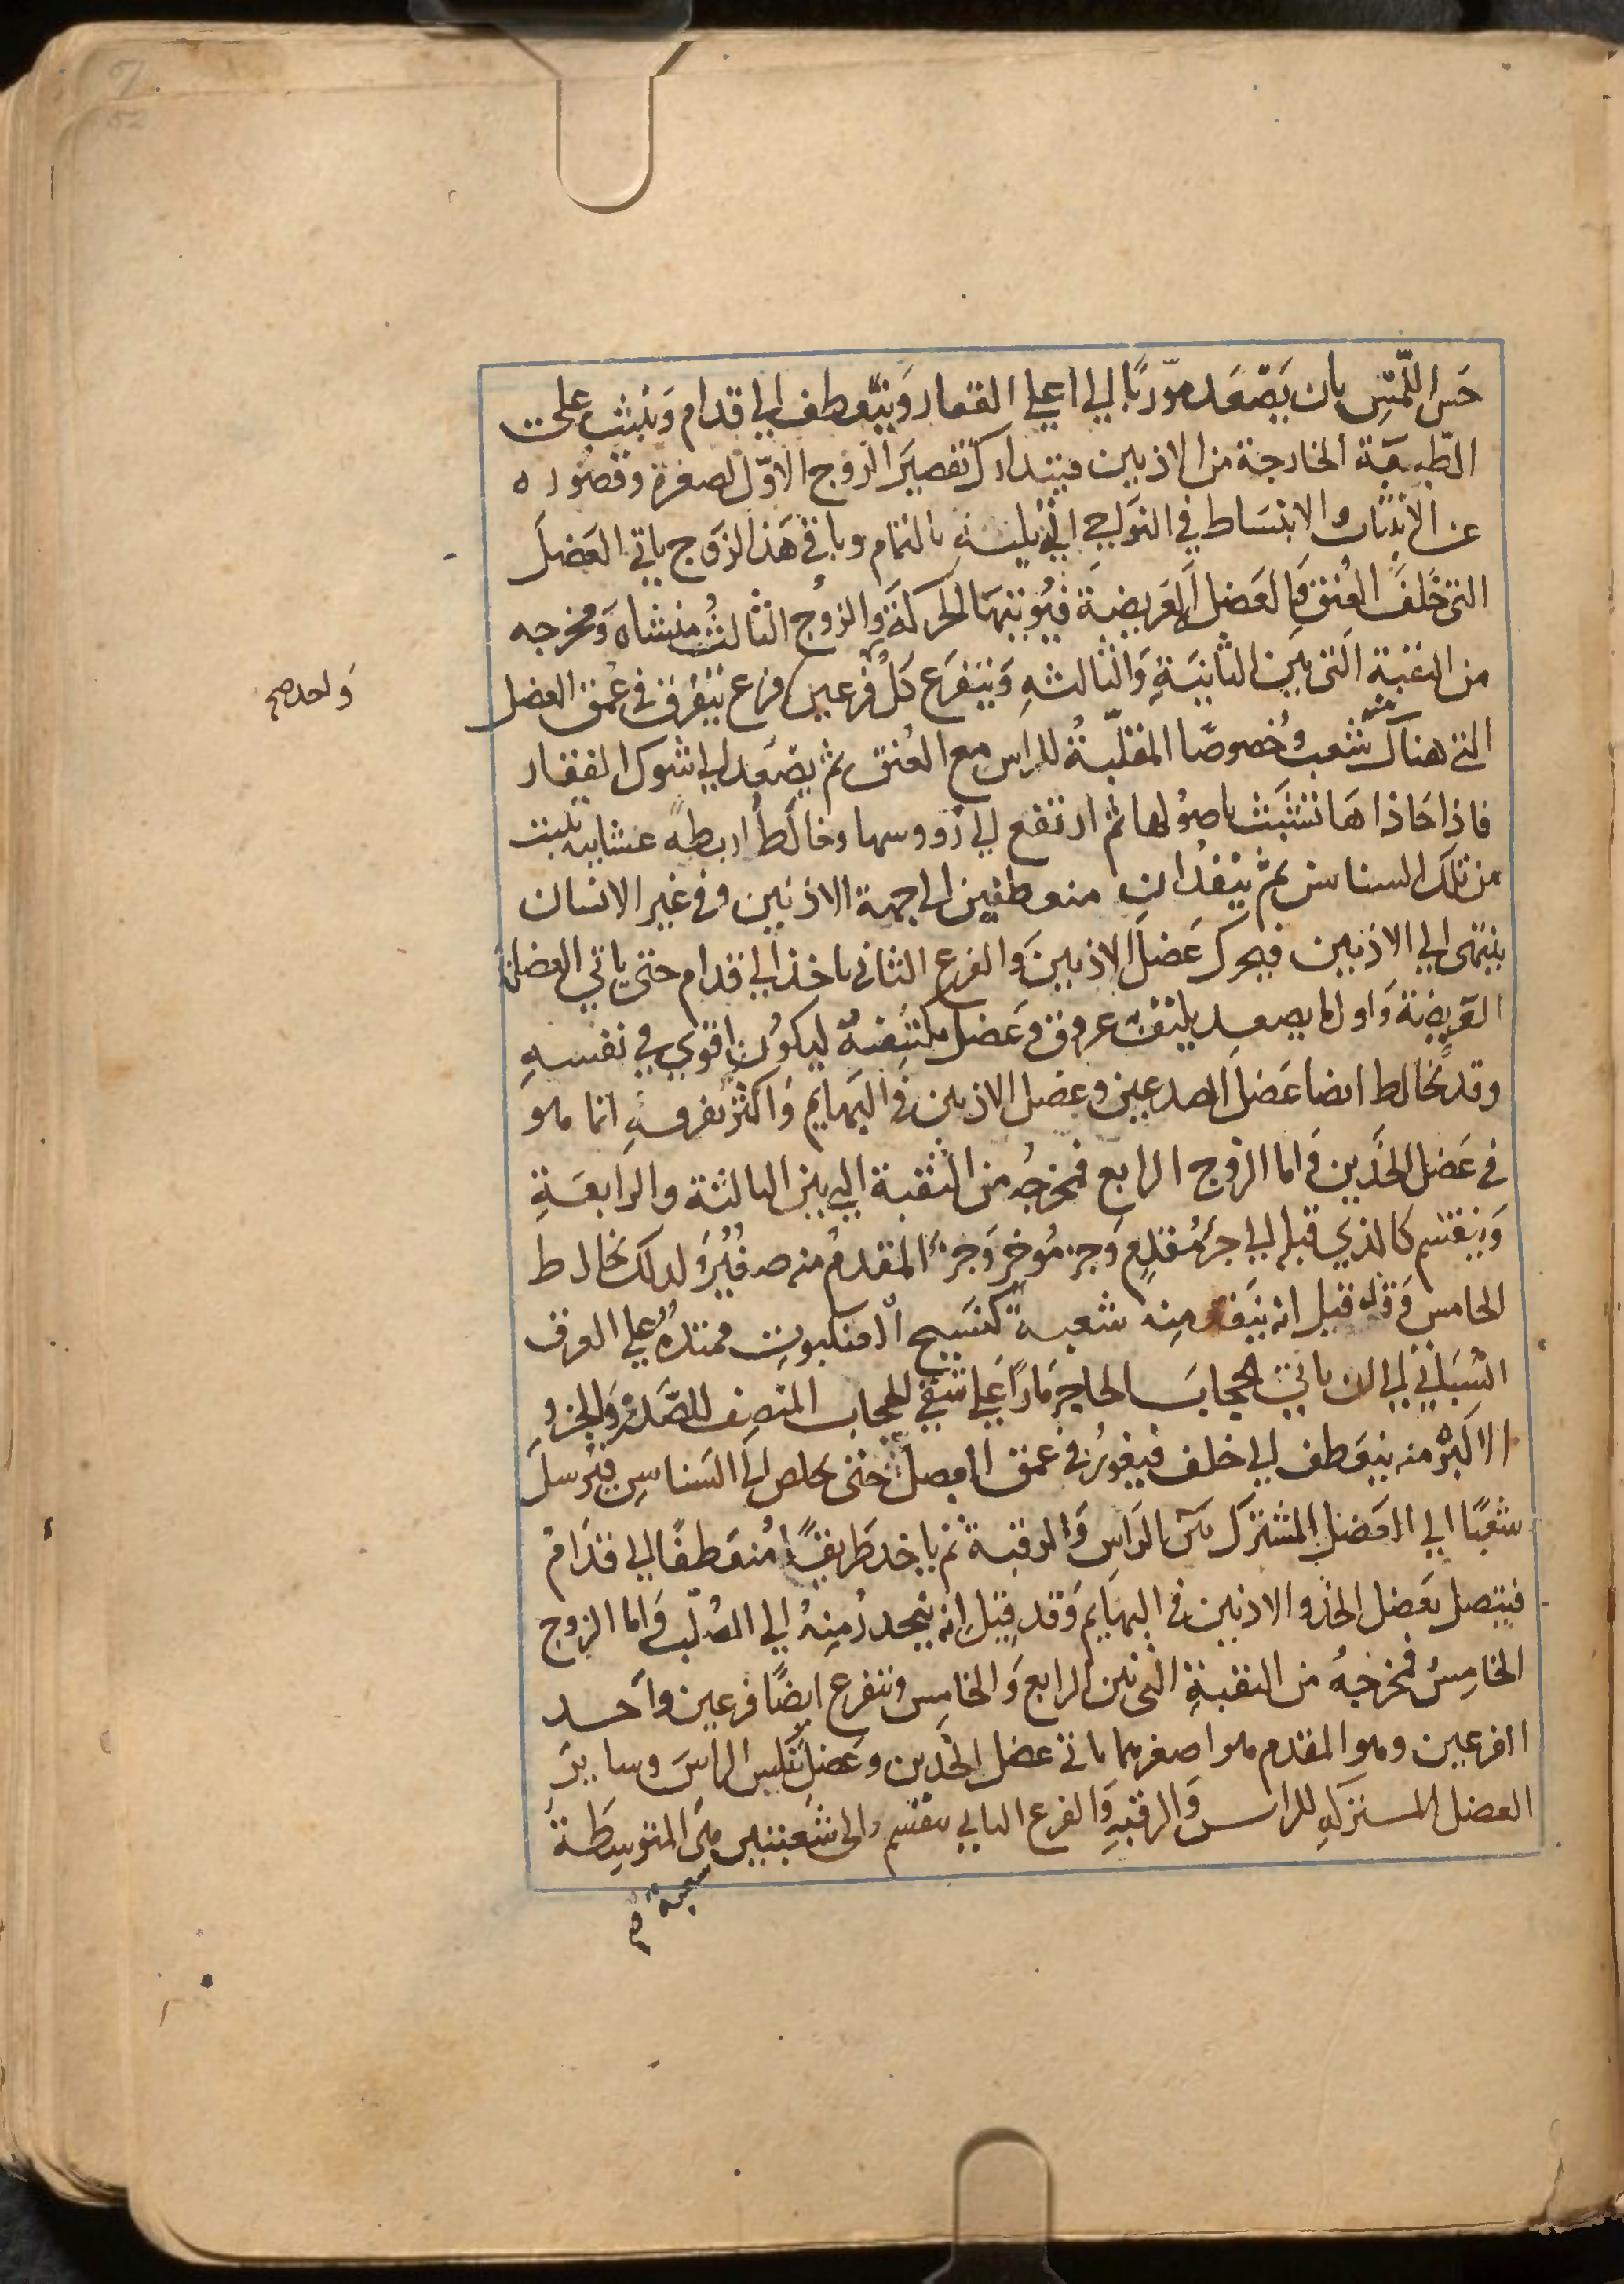 حَس اللّمْسِ بان يَصْعَد مورّبًا الي اعلي الفقار وَينعطف الي قدام وَينبث علي
الطّبقة الخارجة من الاذنين فيتدارك تقصيَر الزوج الاوّل لصغره وقصوره
عن الانبثاث والانبساط في النواحي التي تليه بالتمام وباقي هَذا الزوج ياتي العَضلَ
التي خَلفَ العُنق وَالعَضل العَريضة فيُوتيهَا الحركة وَالزوجُ الثالثُ منشاه وَمخرجه
من الثقبة التي بين الثانيَة وَالثالثه وَيتفرَع كلُ فرعين فرع يتفرق في عُمق العضل
واحد صح
التي هناك منه شعب وُخصوصًا المقلّبةُ للراس مع العُنق ثم يصْعَد الي شوك الفقار
فاذا حَاذاهَا تشبَّث باصُولها ثم ارتفع الي رووسها وخالطَ اربطه غشاييه تنبت
من تلك السناسن ثم ينفذان منعطفين الي جهة الاذنين وفي غير الانسان
ينتهى الي الاذنين فيحرك عَضلَ الاذنين وَالفرع الثاني ياخذ الي قدام حتى ياتي العضلة
العَريضة وَاول ما يصعد يلتف به عروق وعَضل تكتنفهُ ليكوُن اقوي في نفسهِ
وقد يخالط ايضا عَضل الصدغين وعضل الاذنين في البهايم وَاكثر تفرقهِ انما هو
في عَضل الخدَّين وَاما الزوج الرابع فمخرجُه من الثقبة التي بين الثالثة والرابعَةِ
وَينقسم كالذي قبله الي جزءٍ مُقدمٍ وَجزءٍ مُوخر وَجزءُ المقدمُ منه صغُيرٌ وَلذلك يخالط
الخامس وَقد قيل انه ينفذ منه شعبة كنسيج العنكبوت ممتدة علي العرق
السُّباتي الي ان ياتي الحجابَ الحاجز مَارًا علي شقي الحجاب المنصف للصَّدر وَالجزو
الاكبرُ منه ينعَطف الي خلف فيغورُ في عمق العضل حتى يخلص الي السَناسِن فيُرسلَ
شعبًا الي العضل المشترك بين الراس وَالرقبة ثم ياخذ طَريقًا مُنعَطفًا الي قدَام
فيتصل بعَضل الخد والاذنين في البهايم وَقد قيل انه ينحدرُ مِنهُ الي الصُلب وَاما الزوج
الخامِسُ فمخرجُهُ من الثقبةِ التي بين الرابع وَالخامِس ويتفرع ايضًا فرعين وَاحد
الفرعين وهو المقدم هو اصغرهما ياتي عضل الخدّين وعَضل تنكيس الراسَ وسايرَ
العضل المشتركهِ للراس وَالرقبهِ وَالفرع الثاني ينقسم الي شعبتين هي المتوسِطَةُ
شعبة